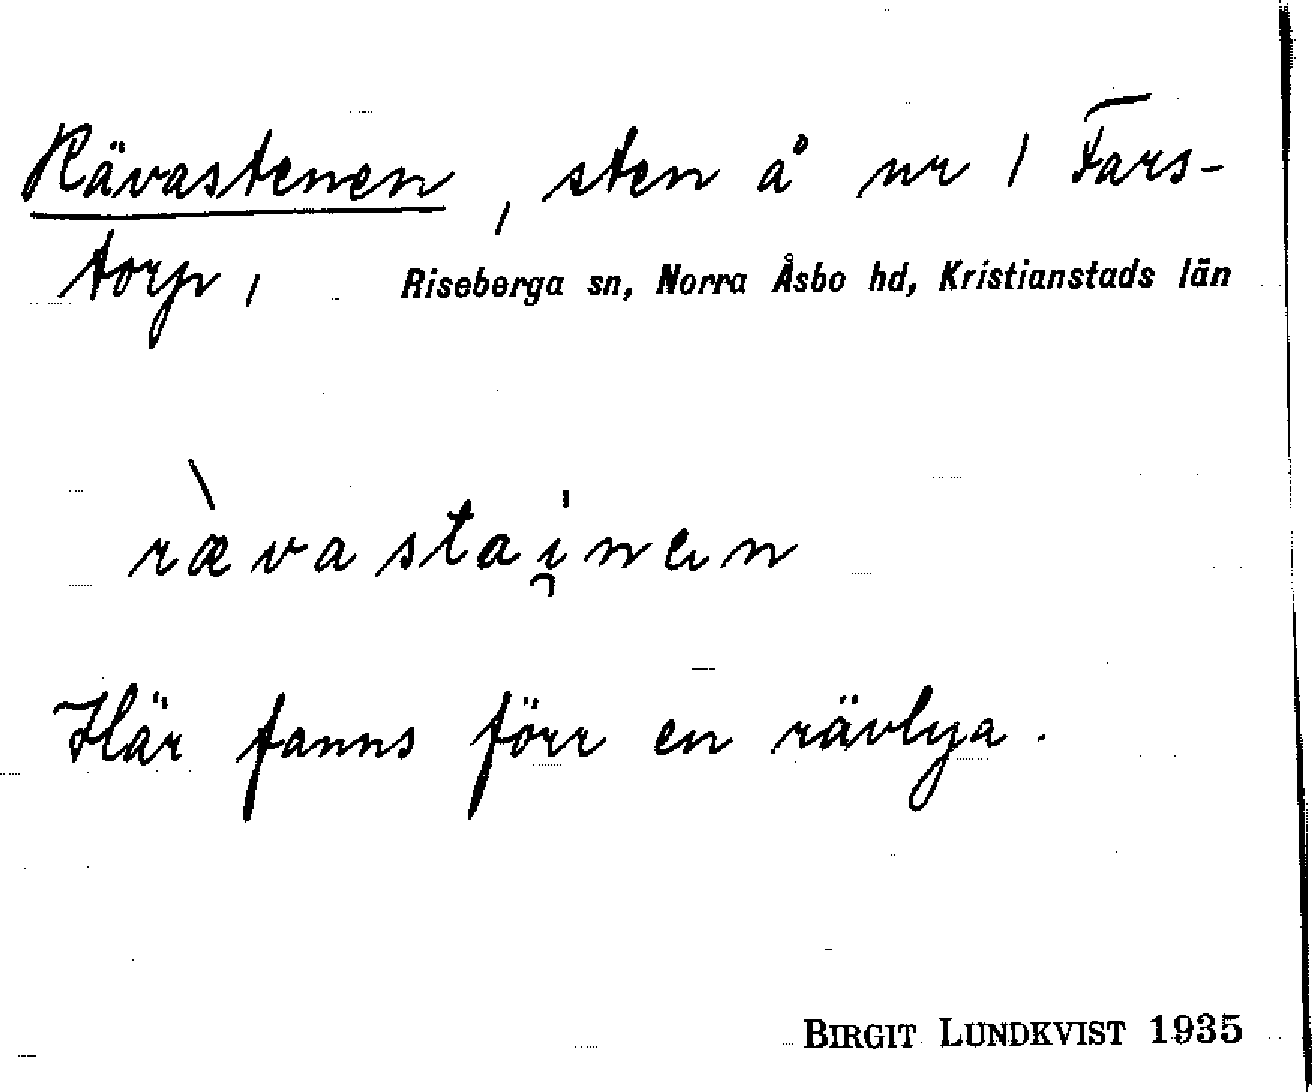 Rävastenen, sten å nr 1 Fars-
torp, Riseberga sn, Norra Åsbo hd, Kristianstads län
rævastai̯nen
Här fanns förr en rävlya.
BIRGIT LUNDKVIST 1935